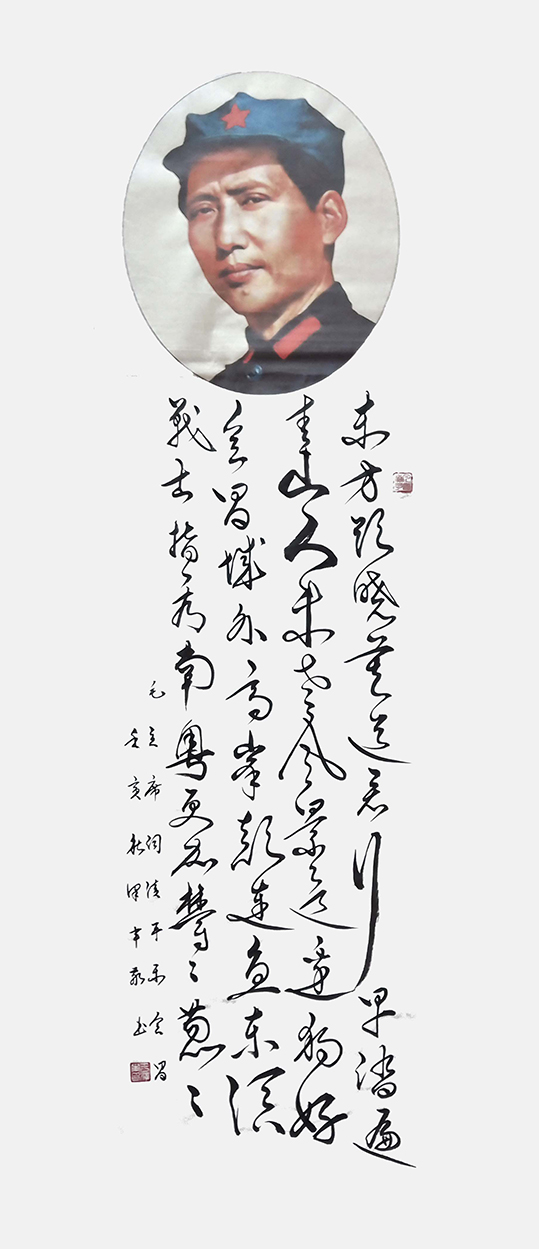 东方欲晓莫道君行早踏遍
青山人未老风景这边独好
会昌城外高峰颠连直东溟
战士指看南粤更加郁々葱々
毛主席词清平乐会昌
亥秋敬书